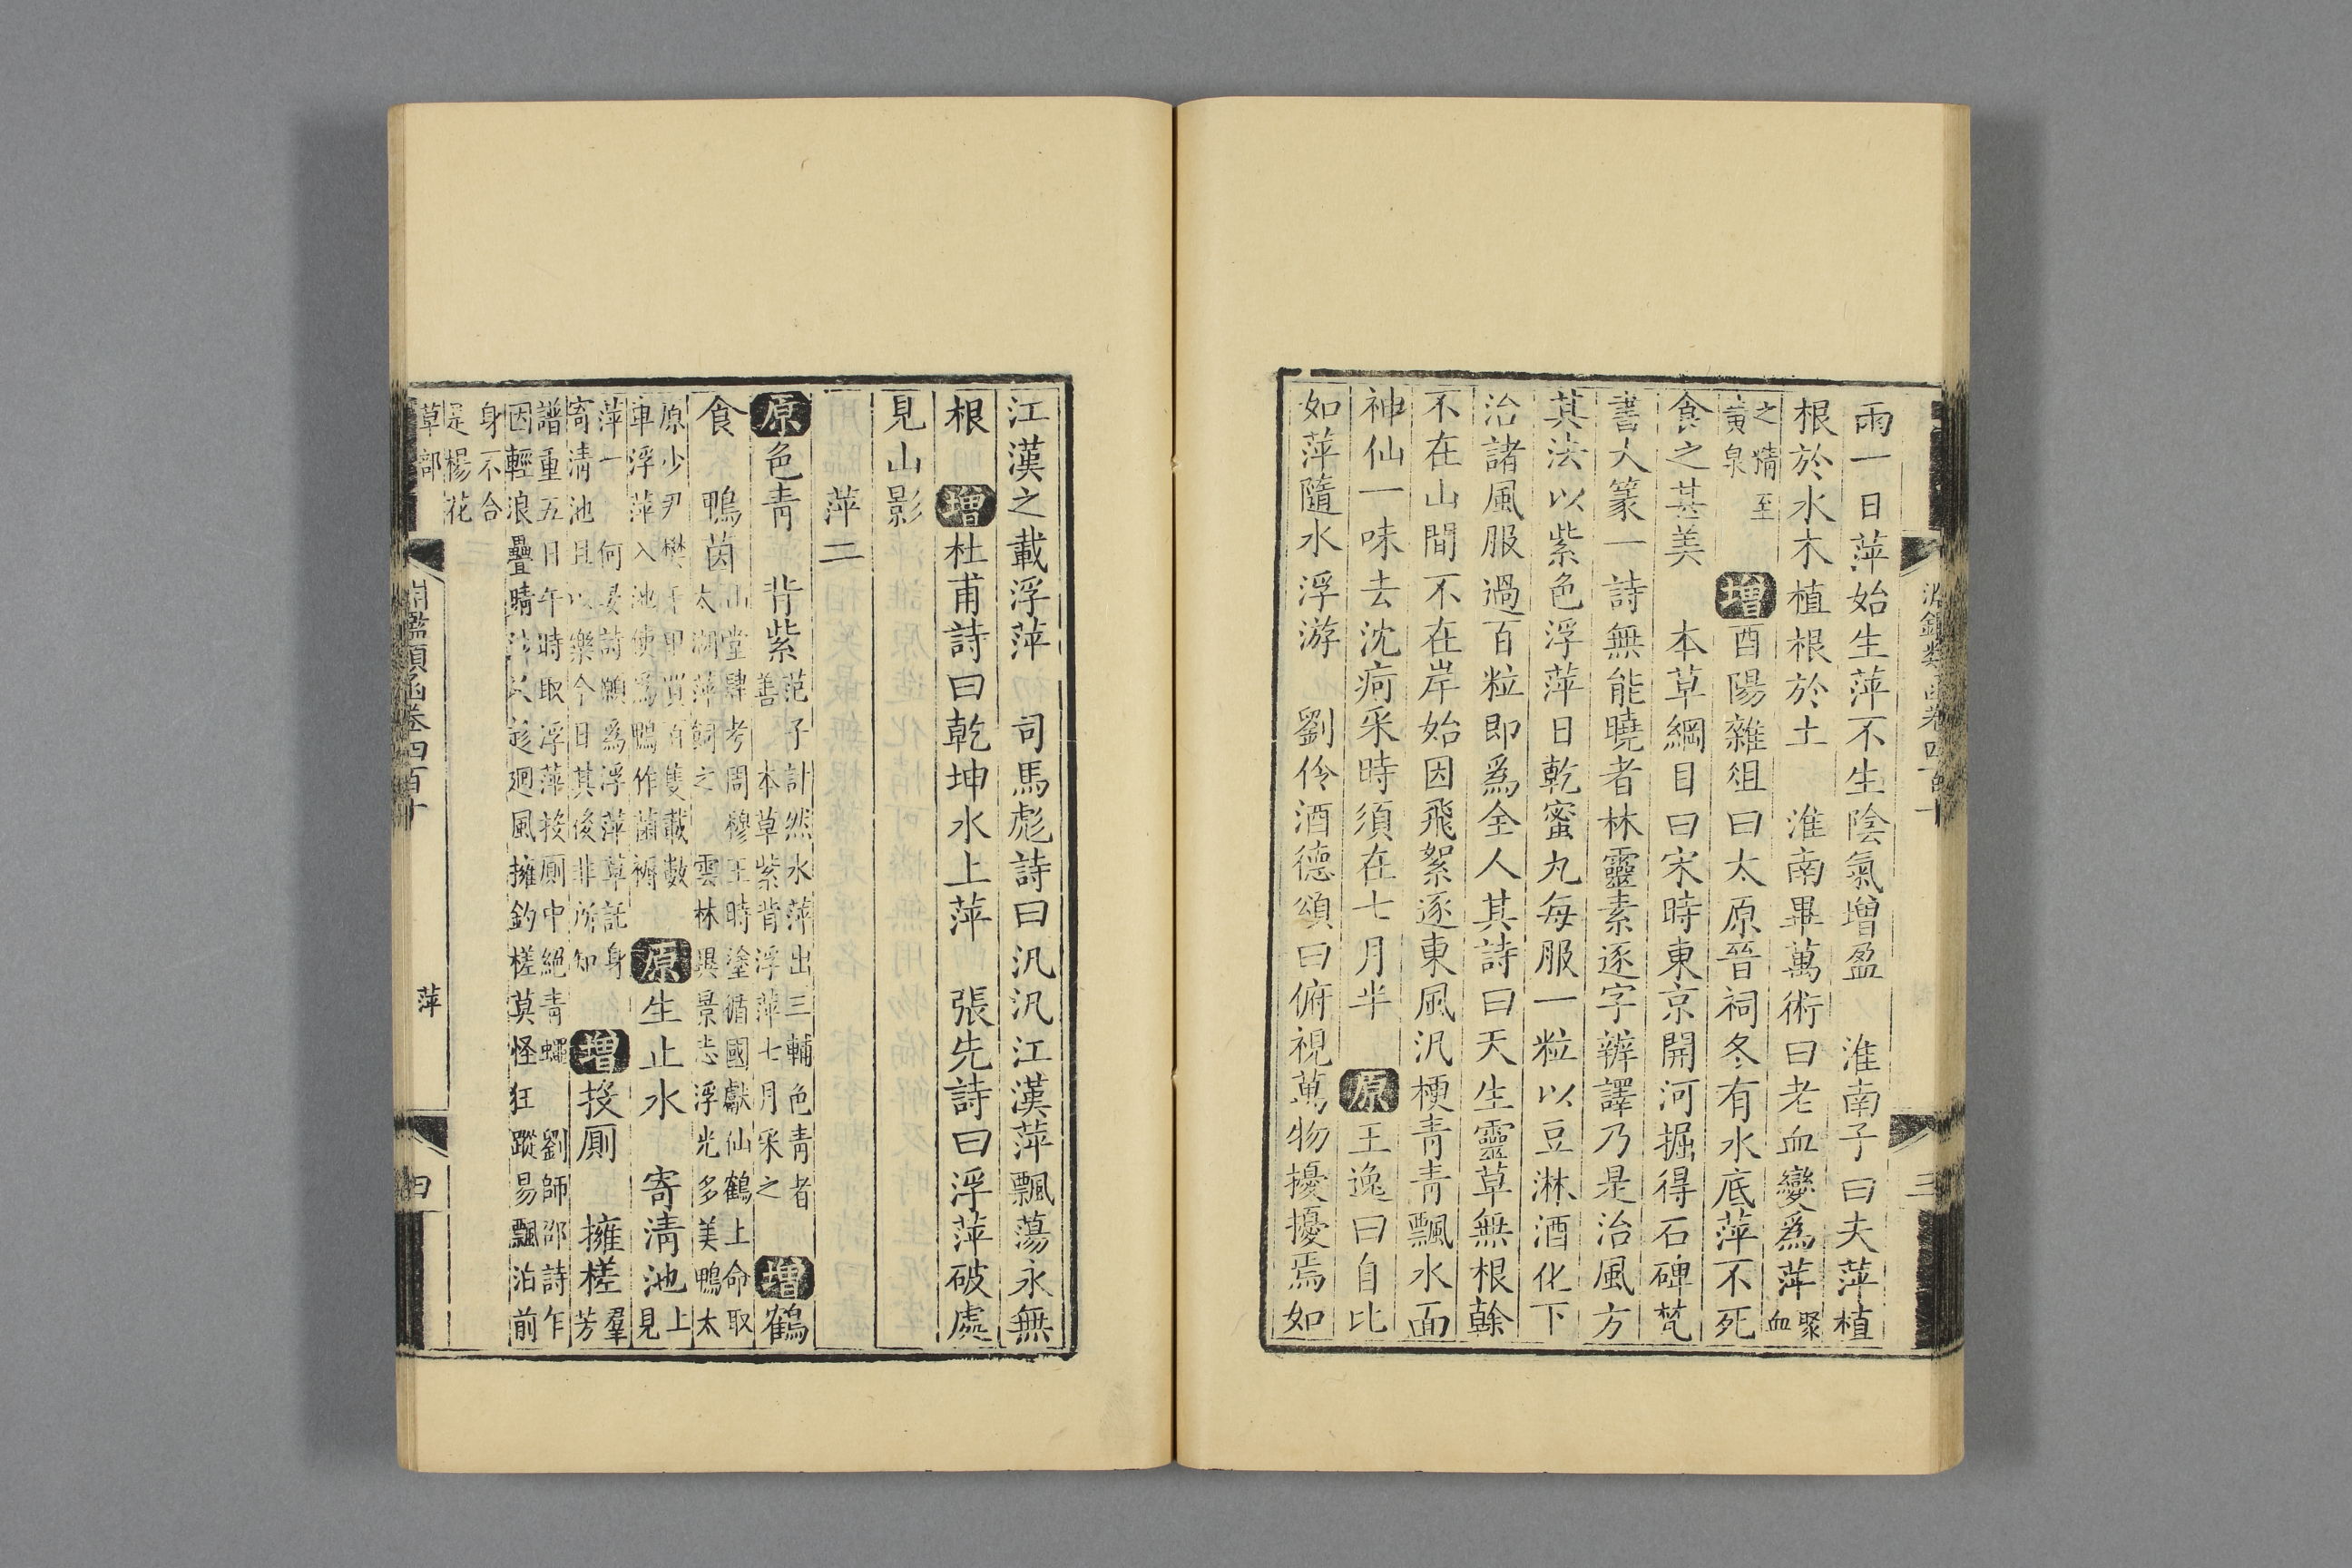 雨一日萍始生萍不生陰氣增盈　淮南子曰夫萍植
根於水木植根於土　淮南畢萬術曰老血變爲萍聚血
之精至黃泉　增酉陽雜俎曰太原晉祠冬有水底萍不死
食之甚美　本草綱目曰宋時東京開河掘得石碑梵
書大篆一詩無能曉者林靈素逐字辨譯乃是治風方
其法以紫色浮萍日乾蜜丸每服一粒以豆淋酒化下
治諸風服過百粒即爲全人其詩曰天生靈草無根榦
不在山間不在岸始因飛絮逐東風汎梗青青飄水面
神仙一味去沈疴采時須在七月半　原王逸曰自比
如萍隨水浮游　劉伶酒德頌曰俯視萬物擾擾焉如
江漢之載浮萍　司馬彪詩曰汎汎江漢萍飄蕩永無
根　增杜甫詩曰乾坤水上萍　張先詩曰浮萍破處
見山影
萍二
原色青　背紫范子計然水萍出三輔色青者善　本草紫背浮萍七月采之　增鶴
食　鴨茵山堂肆考周穆王時塗循國獻仙鶴上命取太湖萍飼之　雲林異景志浮光多美鴨太
原少尹樊千里買百隻載數車浮萍入池使爲鴨作茵褥　原生止水　寄清池上見
萍一　何晏詩願爲浮萍草託身寄清池且以樂今日其後非所知　增投厠　擁槎羣芳
譜重五日午時取浮萍投厠中絕青蠅　劉師邵詩乍因輕浪疊晴沙又趁廻風擁釣槎莫怪狂蹤易飄泊前
身不合是楊花
草部
淵鑑類函卷四百十
萍
四